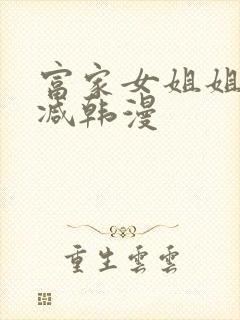 富家女姐姐
减韩漫
重生雲雲